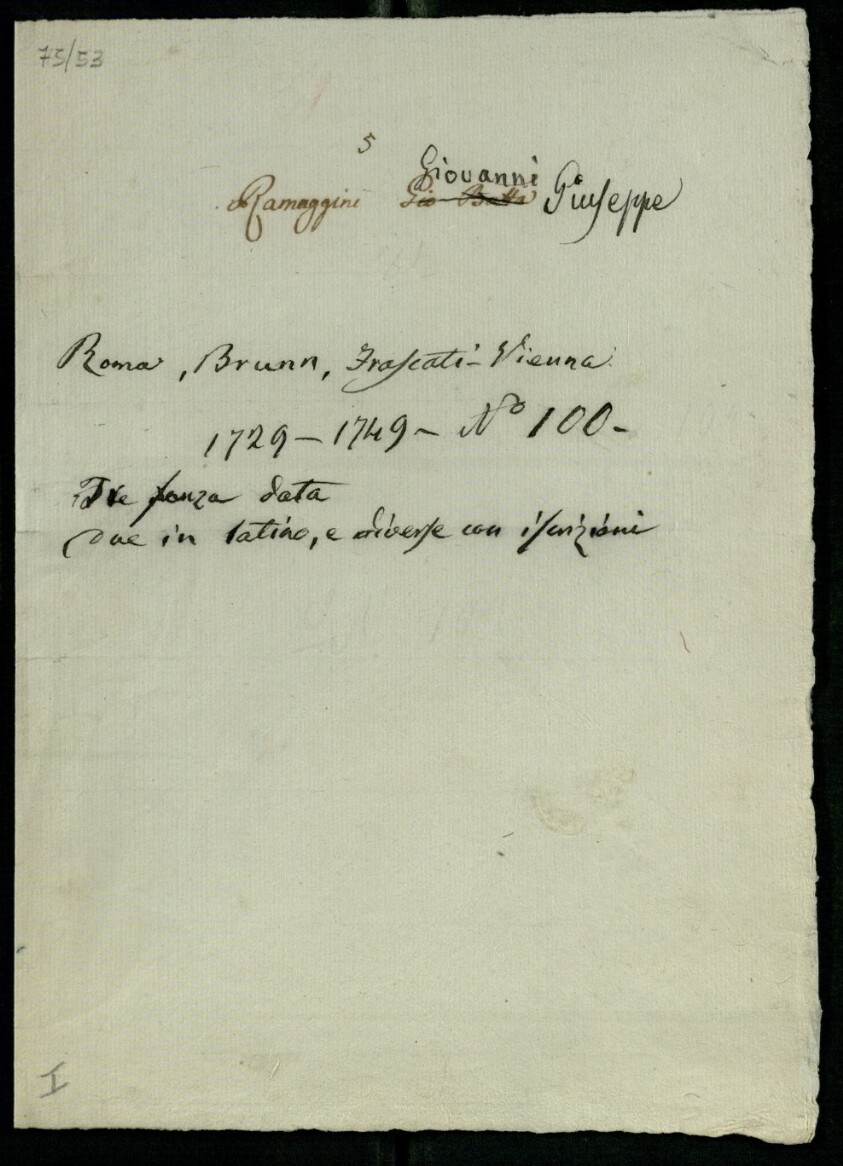 75/53
5
Giovanni
Ramaggini Gio Batta Giuseppe
Roma, Brunn, Frascati - Vienna
1729 - 1749 - No 100 -
Tre senza data
Due in latino, e diverse con iscrizioni
I